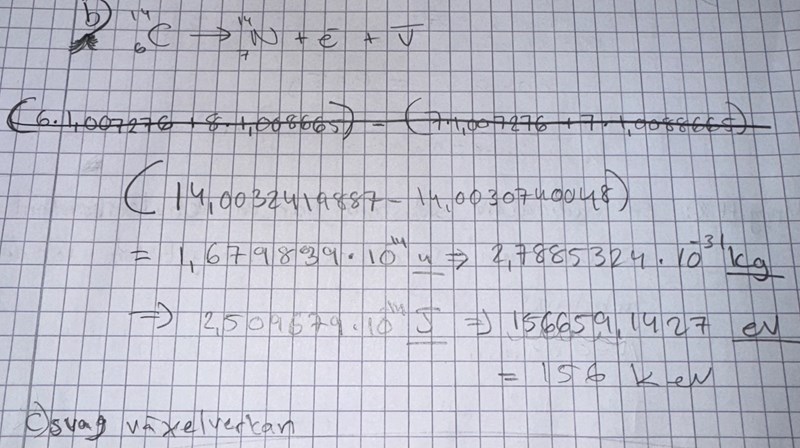 b) ¹⁴₆C → ¹⁴₇N + e̅ + V̅
(6·1,007276 + 8·1,008665) - (7·1,007276 + 7·1,0088665)
(14,0032419887 - 14,0030740048)
= 1,679839·10⁻⁴ u ⇒ 2,7885324·10⁻³¹ kg
⇒ 2,509679·10⁻¹⁴ J ⇒ 156659,1427 eV
= 156 keV
c) svag växelverkan